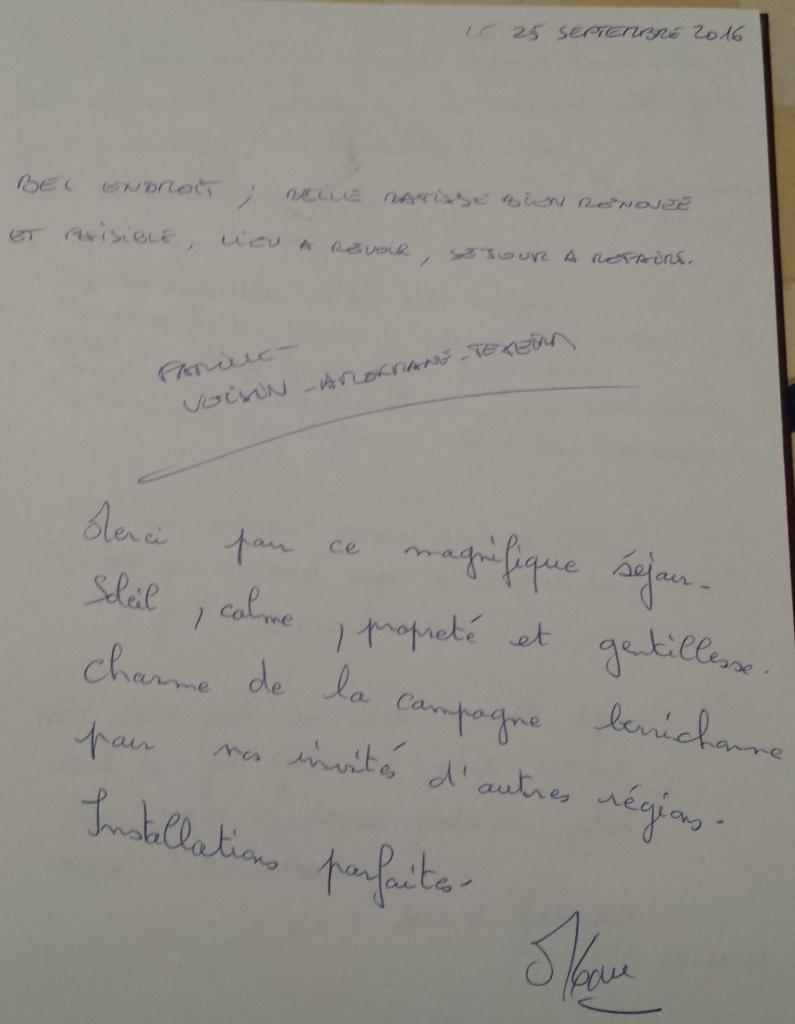 LE 25 SEPTEMBRE 2016
BEL ENDROIT, BELLE BATISSE BIEN RENOVEE
ET PAISIBLE, LIEU A REVOIR, SEJOUR A REFAIRE.
FAMILLE
VOISIN - - TEXEIRA
Merci pour ce magnifique séjour.
Soleil, calme, propreté et gentillesse.
Charme de la campagne berrichonne
pour nos invités d'autres régions.
Installations parfaites.